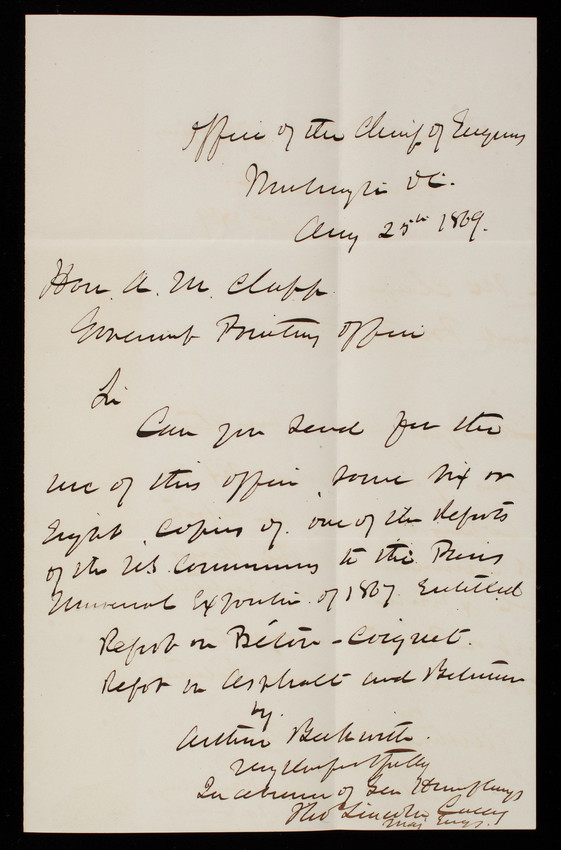 Office of the Chief of Engineers
Washington D.C.
Aug 25th 1869.
Hon. A. M. Clapp
Government Printing Office
Sir
Can you send for the
use of this office, some six or
Eight, copies of, one of the Reports
of the U.S. Commissioners to the Paris
Universal Exposition of 1867. Entitled
Report on Béton-Coignet.
Report on Asphalt and Bitumen
by.
Arthur Beckwith.
Very Respectfully
In absence of Gen Humphreys
Thos Lincoln Casey
Maj Engs.